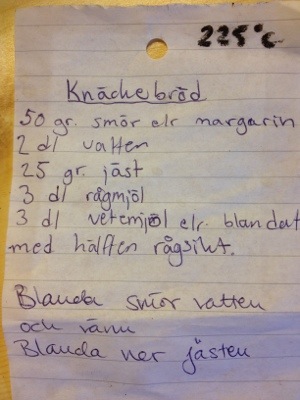 225°C
Knäckebröd
50 gr. smör elr margarin
2 dl vatten
25 gr. jäst
3 dl rågmjöl
3 dl vetemjöl elr. blandat
med hälften rågsikt.
Blanda smör vatten
och värm
Blanda ner jästen